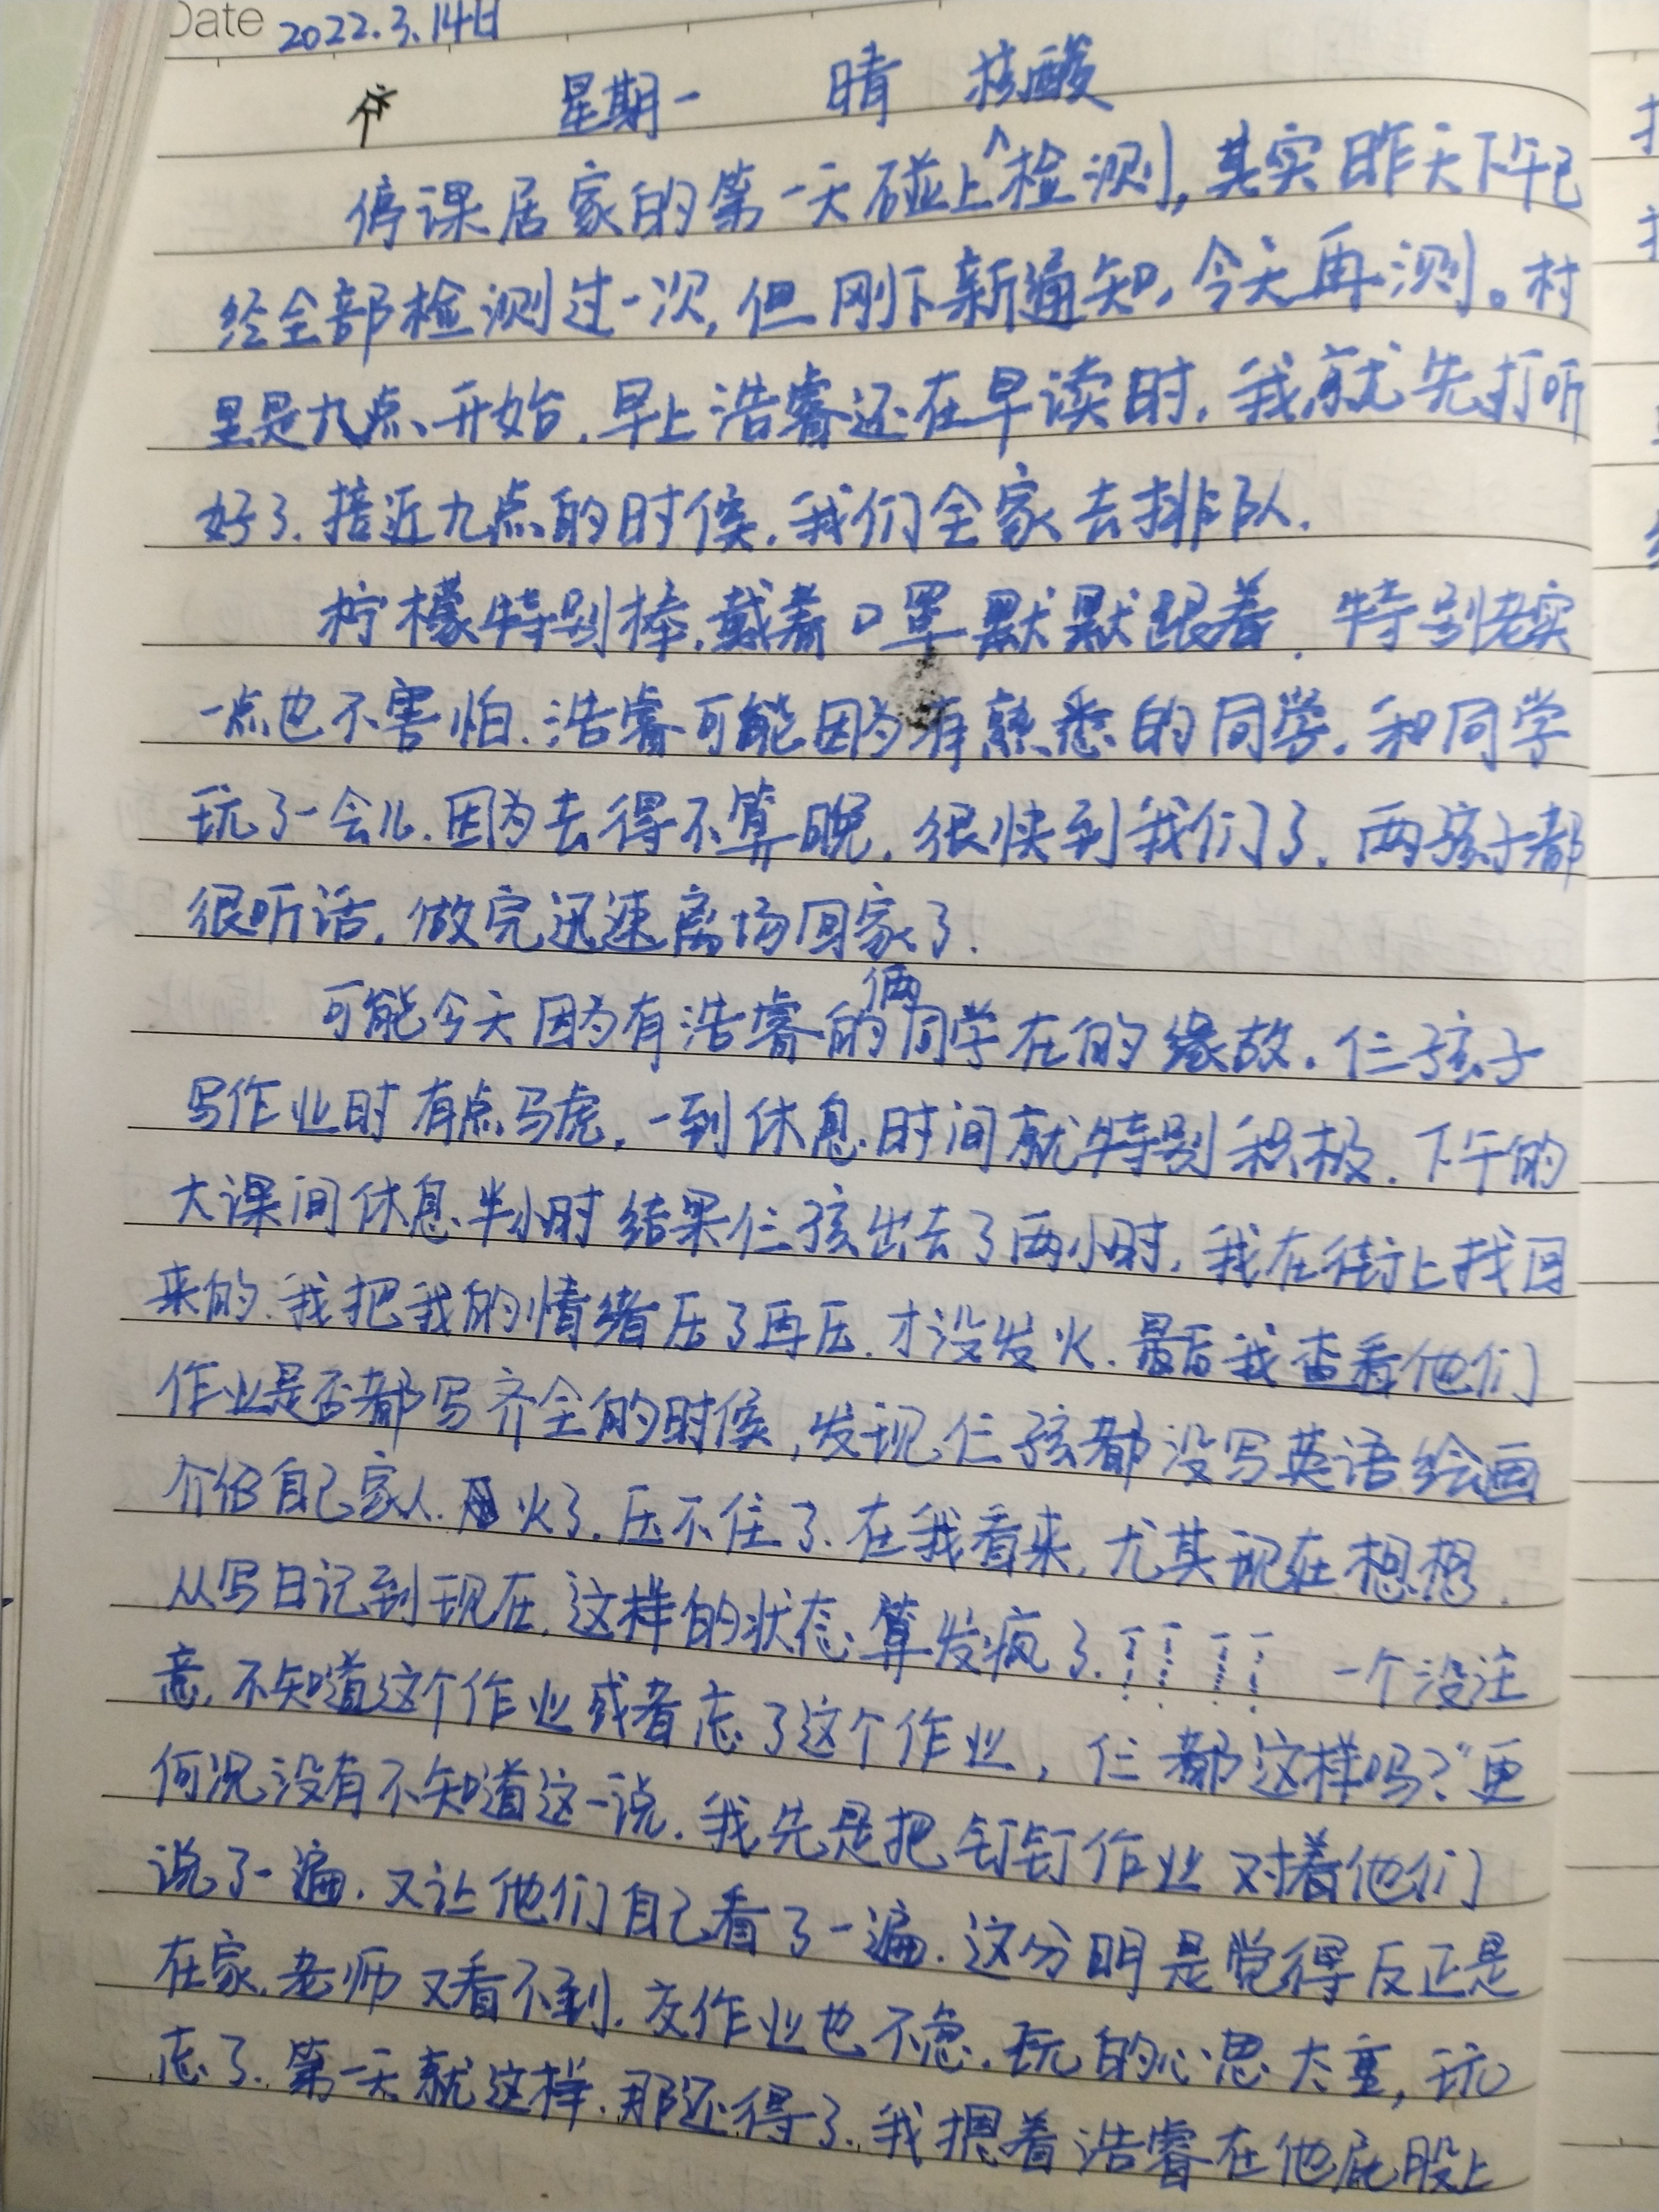 Date 2022.3.14日
星期一 晴 核酸
停课居家的第一天碰上检测,其实昨天下午已
经全部检测过一次,但刚下新通知,今天再测。村
里是九点开始,早上浩睿还在早读时,我就先打听
好了.接近九点的时候,我们全家去排队.
柠檬特别棒,戴着口罩默默跟着,特别老实
一点也不害怕.浩睿可能因为有熟悉的同学,和同学
玩了一会儿.因为去得不算晚,很快到我们了,两孩子都
很听话,做完迅速离场回家了.
俩
可能今天因为有浩睿的同学在的缘故,仨孩子
写作业时有点马虎,一到休息时间就特别积极.下午的
大课间休息半小时结果仨孩出去了两小时,我在街上找回
来的.我把我的情绪压了再压,才没发火.最后我查看他们
作业是否都写齐全的时候,发现仨孩都没写英语绘画
介绍自己家人.火了.压不住了.在我看来,尤其现在想想,
从写日记到现在,这样的状态算发疯了!!!! 一个没注
意,不知道这个作业或者忘了这个作业,仨都这样吗?更
何况没有不知道这一说.我先是把钉钉作业对着他们
说了一遍,又让他们自己看了一遍.这分明是觉得反正是
在家,老师又看不到,交作业也不急,玩的心思太重,玩
忘了.第一天就这样,那还得了.我摁着浩睿在他屁股上